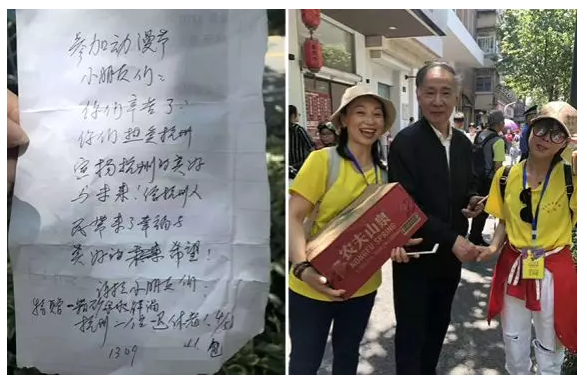 参加动漫节
小朋友们：
你们辛苦了！
你们热爱杭州
宣扬杭州的美好
与未来！给杭州人
民带来了幸福与
美好的 希望！
谢谢小朋友们.
特赠一箱矿泉水
杭州一位退休者！
1309
农夫山泉
NONGFU SPRING